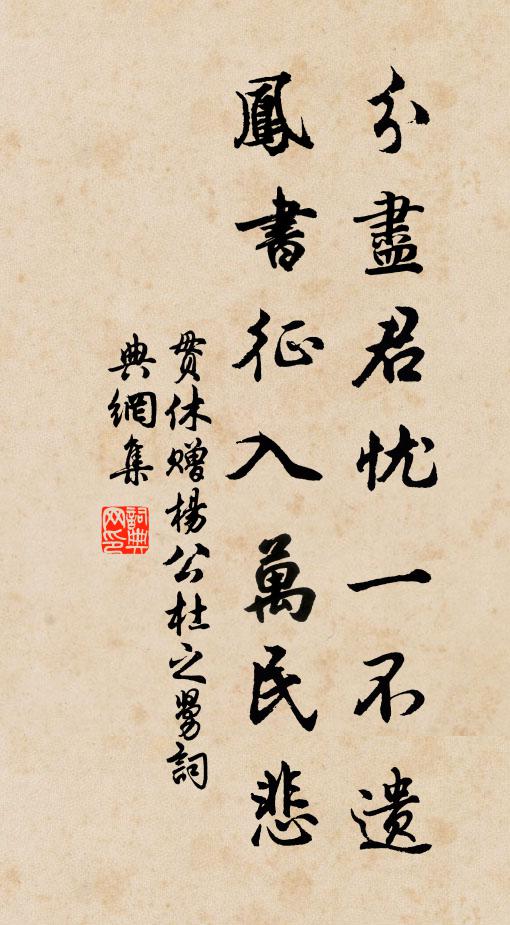 分盡君忧一不遺
鳳書征入萬民悲
貫休贈楊公杜之舅詞
典網集
詞典网印